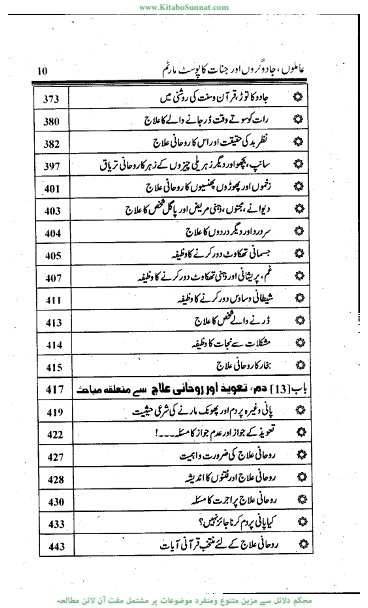 www.KitaboSunnat.com
عاملوں، جادوگروں اور جنات کا پوسٹ مارٹم 10
جادو کا توڑ، قرآن وسنت کی روشنی میں 373
رات کو سوتے وقت ڈر جانے والے کا علاج 380
نظر بد کی حقیقت اور اس کا روحانی علاج 382
سانپ، بچھو اور دیگر زہریلی چیزوں کے زہر کا روحانی تریاق 397
زخموں اور پھوڑوں پھنسیوں کا روحانی علاج 401
دیوانے، مجنوں، ذہنی مریض اور پاگل شخص کا علاج 403
سر درد اور دیگر دردوں کا علاج 404
جسمانی تھکاوٹ دور کرنے کا وظیفہ 405
غم، پریشانی اور ذہنی تھکاوٹ دور کرنے کا وظیفہ 407
شیطانی وساوس دور کرنے کا وظیفہ 411
ڈرنے والے شخص کا علاج 413
مشکلات سے نجات کا وظیفہ 414
بخار کا روحانی علاج 415
باب [13] دم، تعویذ اور روحانی علاج سے متعلقہ مباحث 417
پانی وغیرہ پر دم اور پھونک مارنے کی شرعی حیثیت 419
تعویذ کے جواز اور عدم جواز کا مسئلہ ۔۔۔! 422
روحانی علاج کی ضرورت واہمیت 427
روحانی علاج اور فتنوں کا اندیشہ 428
روحانی علاج پر اجرت کا مسئلہ 430
کیا پانی پر دم کرنا جائز نہیں؟ 433
روحانی علاج کے لئے منتخب قرآنی آیات 443
محکم دلائل سے مزین متنوع ومنفرد موضوعات پر مشتمل مفت آن لائن مطالعہ